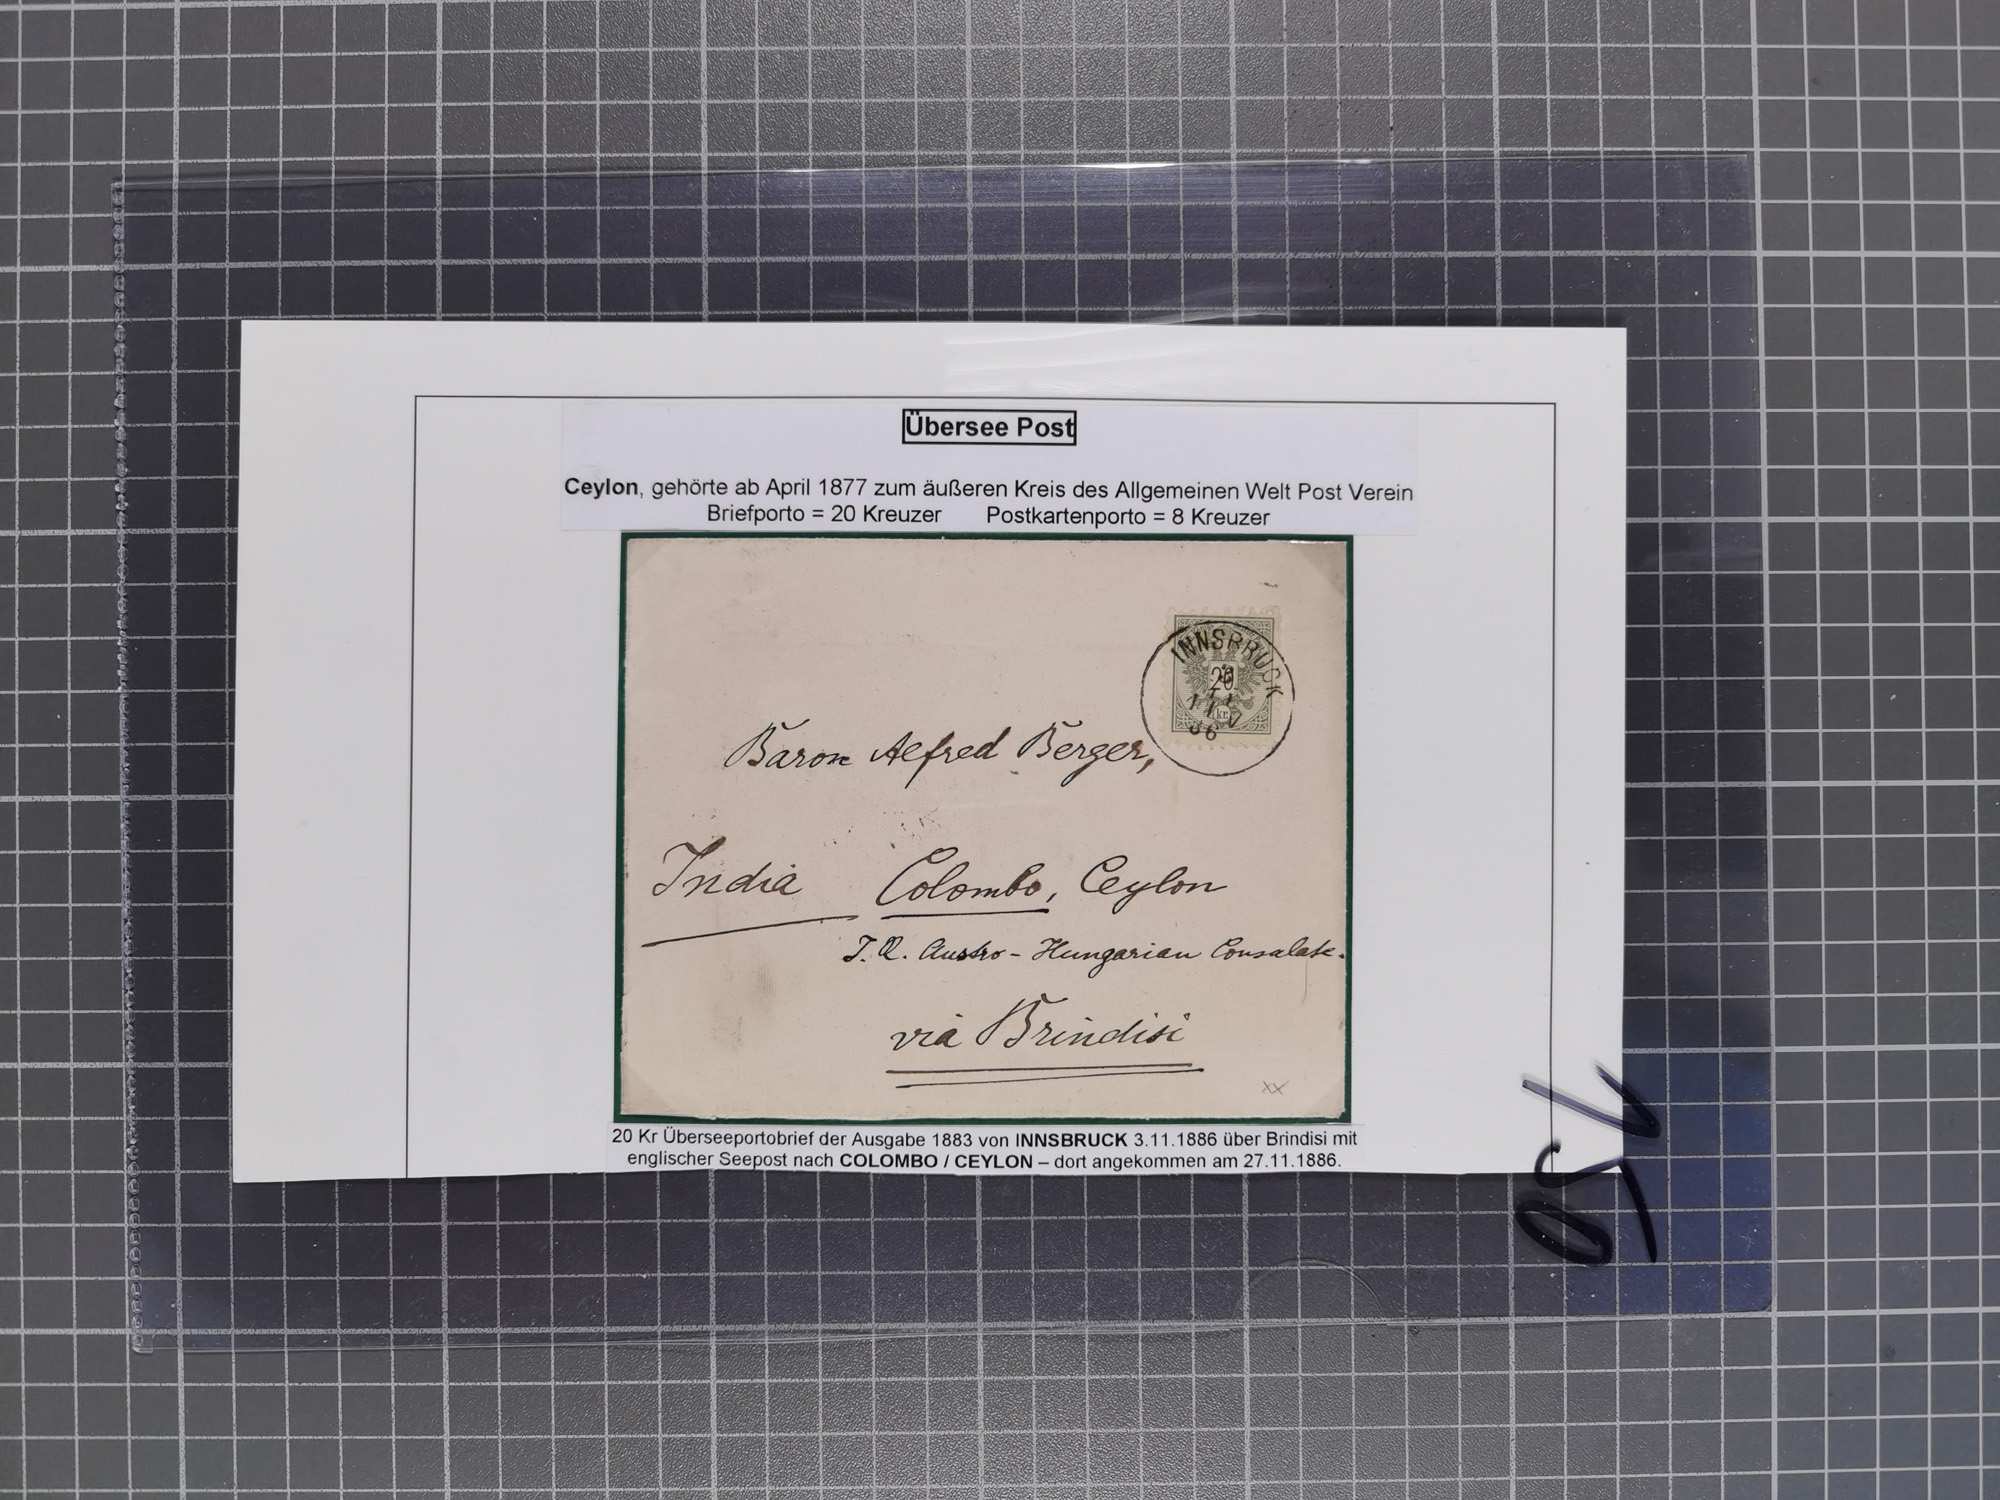 Übersee Post
Ceylon, gehörte ab April 1877 zum äußeren Kreis des Allgemeinen Welt Post Verein
Briefporto = 20 Kreuzer Postkartenporto = 8 Kreuzer
INNSBRUCK
3
20
11
86
kr.
Baron Alfred Berger,
India Colombo, Ceylon
Austro-Hungarian Consulate.
via Brindisi
xx
20 Kr Überseeportobrief der Ausgabe 1883 von INNSBRUCK 3.11.1886 über Brindisi mit
englischer Seepost nach COLOMBO / CEYLON – dort angekommen am 27.11.1886.